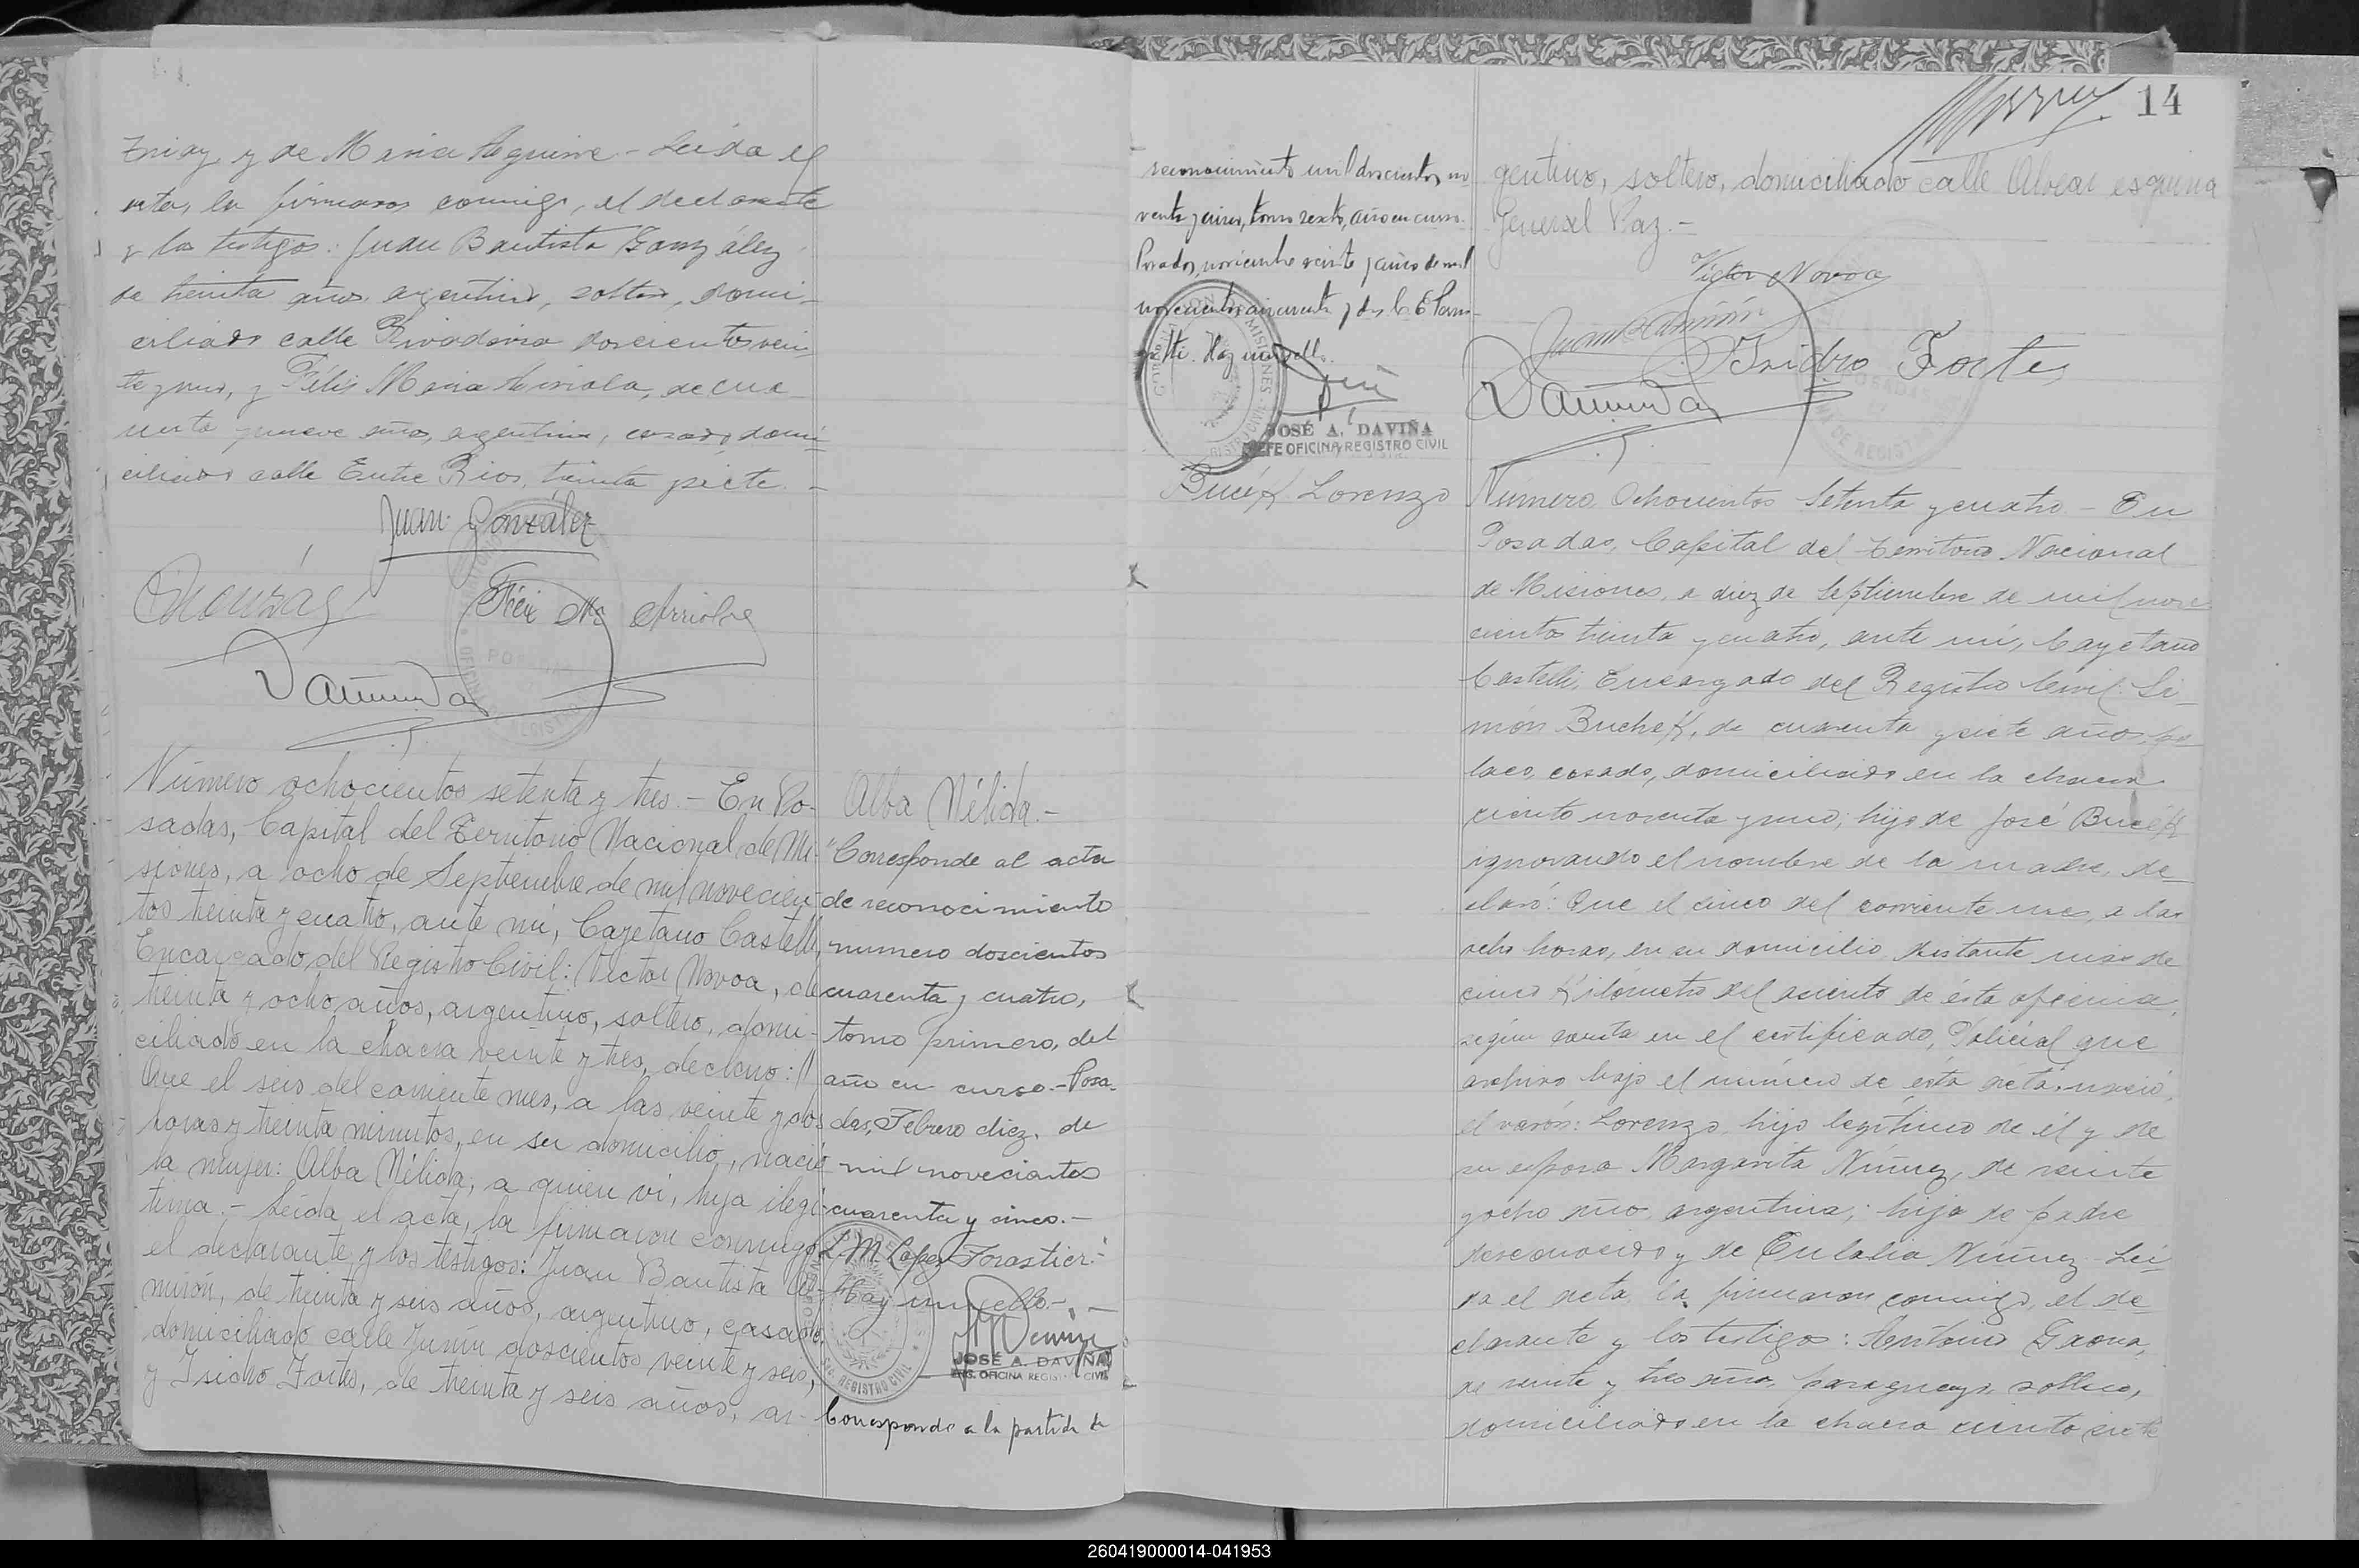 y de Maria Aguirre - Leída el
acta, la firmaron conmigo, el declarante
y los testigos: Juan Bautista González
de treinta años, argentino, soltero, domi-
ciliado calle Rivadavia doscientos vein-
te y uno, y Félix Maria Arriola, de cua-
renta y nueve años, argentino, casado, domi-
ciliado calle Entre Rios, treinta y siete. -
Juan González
Félix Ma Arriola
Número ochocientos setenta y tres. - En Po-
sadas, Capital del Territorio Nacional de Mi-
siones, a ocho de Septiembre de mil novecien-
tos treinta y cuatro, ante mi, Cayetano Castelli,
Encargado del Registro Civil: Victor Novoa, de
treinta y ocho años, argentino, soltero, domi-
ciliado en la chacra veinte y tres, declaro:
Que el seis del corriente mes, a las veinte y dos
horas y treinta minutos, en su domicilio, nació
la mujer: Alba Nélida, a quien vi, hija ilegi-
tima. - Leída el acta, la firmaron conmigo,
el declarante y los testigos: Juan Bautista
de treinta y seis años, argentino, casado,
domiciliado calle Junín doscientos veinte y seis,
y Isidro Fortes, de treinta y seis años, ar-
Alba Nélida.-
"Corresponde al acta
de reconocimiento
numero doscientos
cuarenta y cuatro,
tomo primero, del
año en curso.- Posa-
das, Febrero diez, de
mil novecientos
cuarenta y cinco.-
L. M. Lopez Forastier.-
Hay un sello.-
JOSÉ A. DAVIÑA
ENC. OFICINA REGISTRO CIVIL
Corresponde a la partida de
reconocimiento mil doscientos no
venta y cinco, tomo sexto, año en curso.
Posadas, noviembre veinte y cinco de mil
novecientos cincuenta y dos
Hay un sello.
JOSÉ A. DAVIÑA
JEFE OFICINA REGISTRO CIVIL
14
gentino, soltero, domiciliado calle Alvear esquina
General Paz.-
Victor Novoa
Isidro Fortes
Bucék Lorenzo
Número Ochocientos Setenta y cuatro - En
Posadas, Capital del Territorio Nacional
de Misiones, a diez de Septiembre de mil nove
cientos treinta y cuatro, ante mi, Cayetano
Castelli, Encargado del Registro Civil: Si-
món Buchek, de cuarenta y siete años, po-
laco, casado, domiciliado en la chacra
ciento noventa y uno, hijo de José Bucék
ignorando el nombre de la madre, de-
claró: Que el cinco del corriente mes, a las
ocho horas, en su domicilio distante mas de
cinco Kilómetros del asiento de ésta oficina,
según consta en el certificado, Policial que
archivo bajo el número de ésta acta, nació,
el varón: Lorenzo, hijo legítimo de él y de
su esposa Margarita Núñez, de veinte
y ocho años argentina, hija de padre
desconocido y de Eulalia Núñez - Leí-
da el acta la firmaron conmigo, el de-
clarante y los testigos: Antonio Gaona,
de veinte y tres años, paraguayo, soltero,
domiciliado en la chacra ciento siete
260419000014-041953